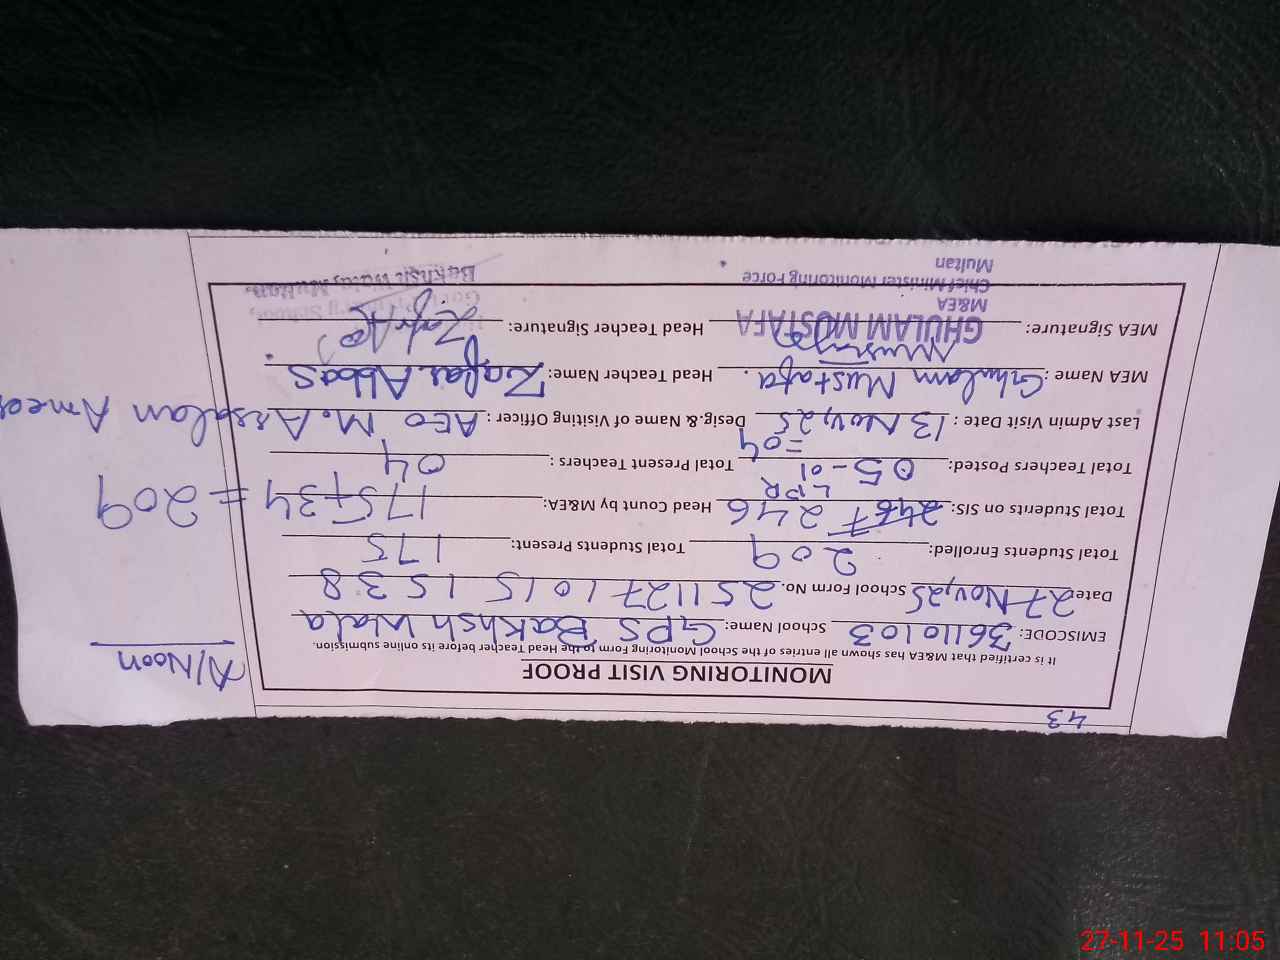 43
MONITORING VISIT PROOF
It is certified that M&EA has shown all entries of the School Monitoring Form to the Head Teacher before its online submission.
A/Noon
EMISCODE: 36110103 School Name: GPS Bakhsh Wala
Date: 27 Nov, 25 School Form No. 251127 1015 1538
Total Students Enrolled: 209 Total Students Present: 175
Total Students on SIS: 246 Head Count by M&EA: 175+34 = 209
Total Teachers Posted: 05 - 01 LPR = 04 Total Present Teachers : 04
Last Admin Visit Date : 13 Nov, 25 Desig.& Name of Visiting Officer : AEO M. Arsalan Ameer
MEA Name : Ghulam Mustafa. Head Teacher Name: Zafar Abbas
MEA Signature: Head Teacher Signature:
GHULAM MUSTAFA
M&EA
Chief Minister Monitoring Force
Multan
Bakhsh Wala, Multan.
27-11-25 11:05